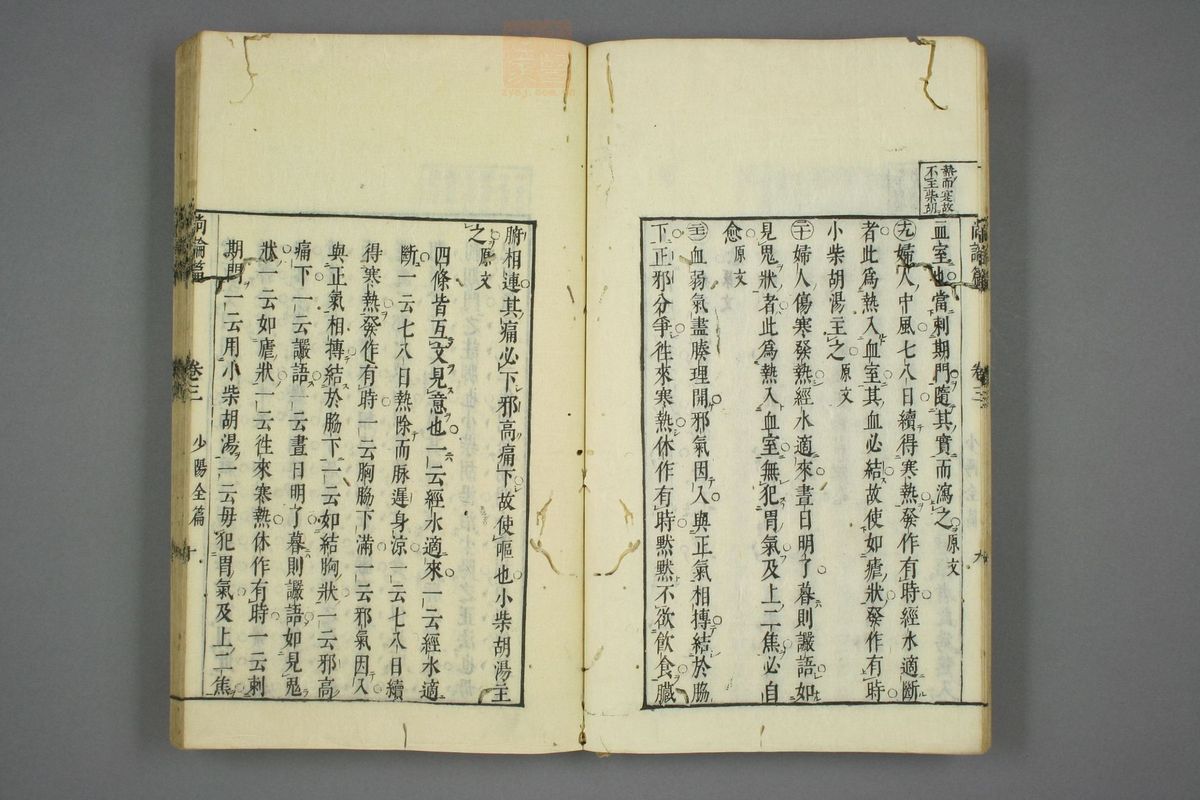 熱而寔故
不主柴胡
血室也當刺期門隨其實而瀉之原文
九 婦人中風七八日續得寒熱發作有時經水適斷
者此爲熱入血室其血必結故使如瘧狀發作有時
小柴胡湯主之原文
二十 婦人傷寒發熱經水適來晝日明了暮則讝語如
見鬼狀者此爲熱入血室無犯胃氣及上二焦必自
愈原文
血弱氣盡腠理開邪氣因入與正氣相搏結於脇
下正邪分爭徃來寒熱休作有時黙黙不欲飮食臟
尚論篇 卷三 九
腑相連其痛必下邪高痛下故使嘔也小柴胡湯主
之原文
四條皆互文見意也一云經水適來一云經水適
斷一云七八日熱除而脉遲身涼一云七八日續
得寒熱發作有時一云胸脇下滿一云邪氣因入
與正氣相搏結於脇下一云如結胸狀一云邪高
痛下一云讝語一云晝日明了暮則讝語如見鬼
狀一云如瘧狀一云徃來寒熱休作有時一云刺
期門一云用小柴胡湯一云毋犯胃氣及上二焦
尚論篇 卷三 少陽全篇 十